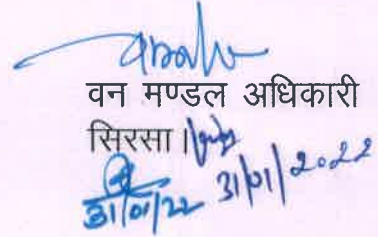 वन मण्डल अधिकारी
सिरसा।
31/01/2022
31/01/22